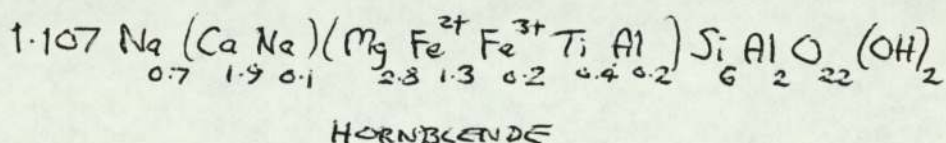 1.107 Na0.7 (Ca1.9 Na0.1)(Mg2.8 Fe2+1.3 Fe3+0.2 Ti0.4 Al0.2) Si6 Al2 O22 (OH)2
HORNBLENDE